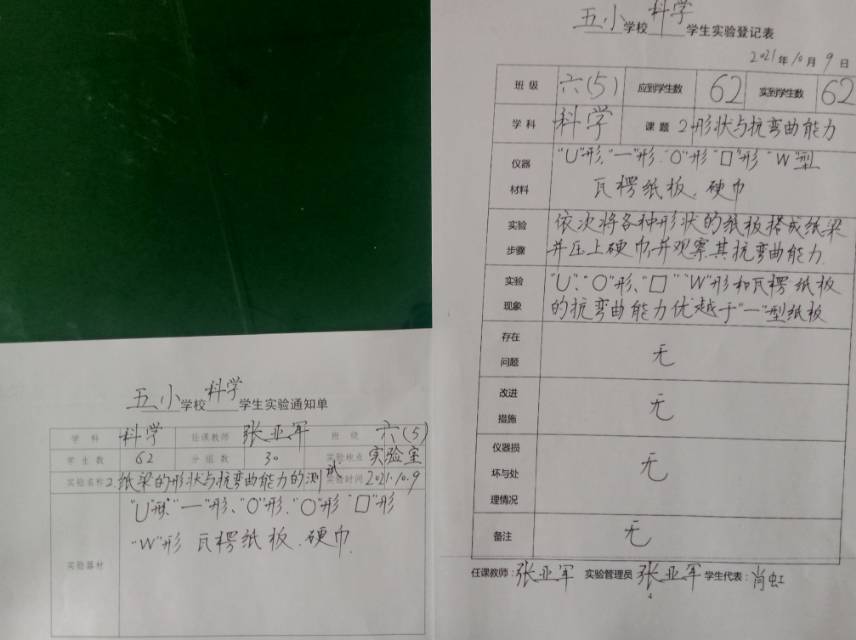 五小学校科学学生实验通知单
学科 科学 任课教师 张亚军 班级 六(5)
学生数 62 分组数 30 实验地点 实验室
实验名称 2.纸梁的形状与抗弯曲能力的测试 实验时间 2021.10.9
实验器材
"U"形."一"形、"O"形."O"形"口"形
"W"形 瓦楞纸板、硬币
五小学校科学学生实验登记表
2021年10月9日
班级 六(5) 应到学生数 62 实到学生数 62
学科 科学 课题 2形状与抗弯曲能力
仪器材料
"U"形,"一"形."O"形"口"形"W"型
瓦楞纸板、硬币
实验步骤
依次将各种形状的纸板搭成纸梁
并压上硬币,并观察其抗弯曲能力.
实验现象
"U"."O"形、"口""W"形和瓦楞纸板
的抗弯曲能力优越于"一"型纸板
存在问题 无
改进措施 无
仪器损坏与处理情况 无
备注 无
任课教师:张亚军 实验管理员 张亚军 学生代表:肖虹